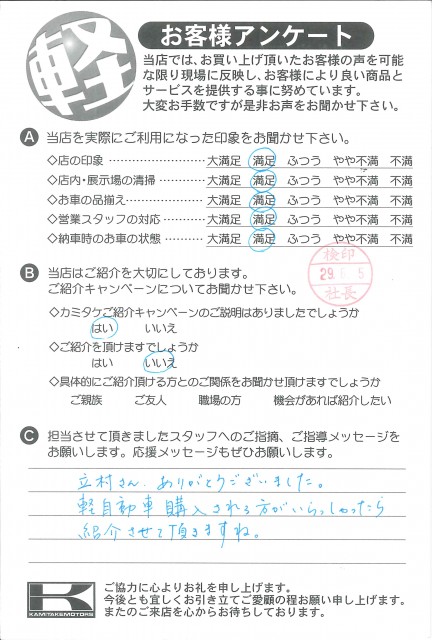 軽
お客様アンケート
当店では、お買い上げ頂いたお客様の声を可能
な限り現場に反映し、お客様により良い商品と
サービスを提供する事に努めています。
大変お手数ですが是非お声をお聞かせ下さい。
A 当店を実際にご利用になった印象をお聞かせ下さい。
◇店の印象 ………………… 大満足 満足 ふつう やや不満 不満
◇店内・展示場の清掃 ………… 大満足 満足 ふつう やや不満 不満
◇お車の品揃え ……………… 大満足 満足 ふつう やや不満 不満
◇営業スタッフの対応 ………… 大満足 満足 ふつう やや不満 不満
◇納車時のお車の状態 ………… 大満足 満足 ふつう やや不満 不満
検印
29. 6. 5
社長
B 当店はご紹介を大切にしております。
ご紹介キャンペーンについてお聞かせ下さい。
◇カミタケご紹介キャンペーンのご説明はありましたでしょうか
はい いいえ
◇ご紹介を頂けますでしょうか
はい いいえ
◇具体的にご紹介頂ける方とのご関係をお聞かせ頂けますでしょうか
ご親族 ご友人 職場の方 機会があれば紹介したい
C 担当させて頂きましたスタッフへのご指摘、ご指導メッセージを
お願いします。応援メッセージもぜひお願いします。
立村さん、ありがとうございました。
軽自動車購入される方がいらっしゃったら
紹介させて頂きますね。
K
KAMITAKEMOTORS
ご協力に心よりお礼を申し上げます。
今後とも宜しくお引き立てご愛顧の程お願い申し上げます。
またのご来店を心からお待ちしております。